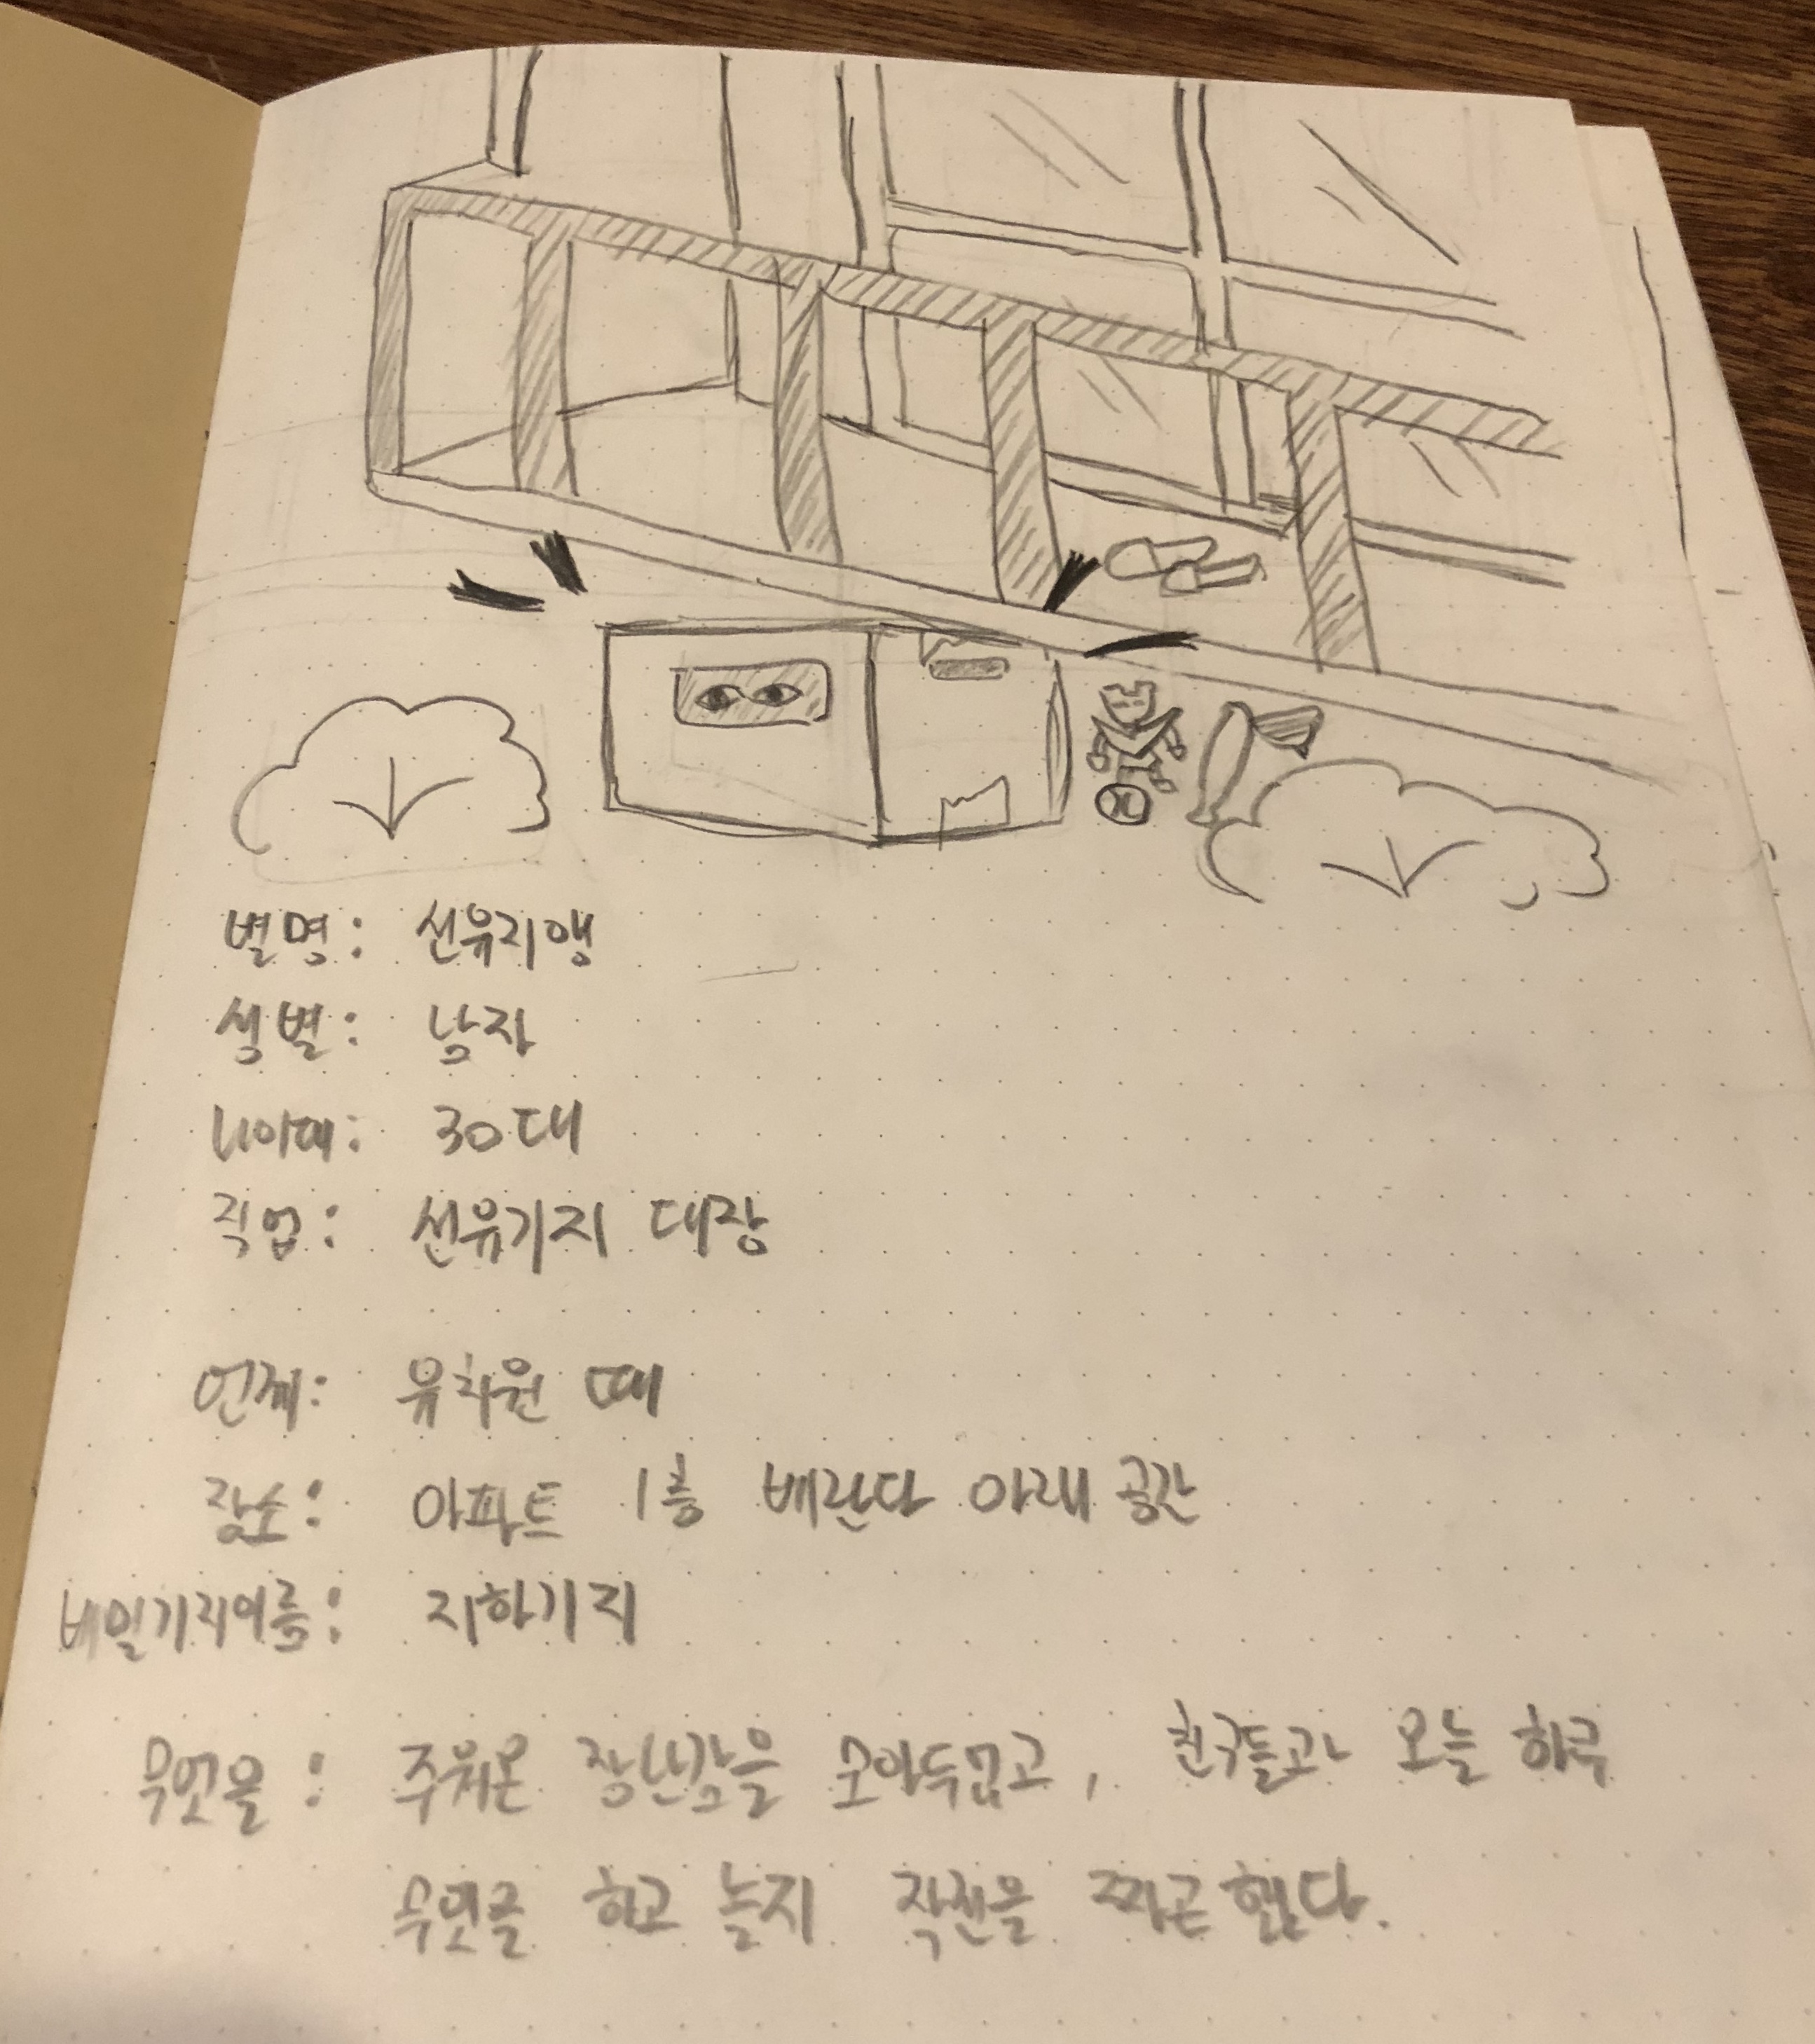 별명: 선유지앵
성별: 남자
나이대: 30대
직업: 선유기지 대장
언제: 유치원 때
장소: 아파트 1층 베란다 아래 공간
비밀기지이름: 지하기지
무엇을: 주워온 장난감을 모아두었고, 친구들과 오늘 하루
무엇을 하고 놀지 작전을 짜곤했다.